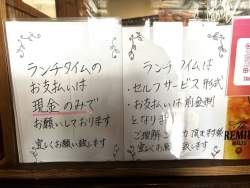 ランチタイムの
お支払いは
現金のみで
お願いしております
宜しくお願い致します
ランチタイムは
・セルフサービス形式
・お支払いは前金制
となります
ご理解
頂きます様
宜しくお願い致します
REMI